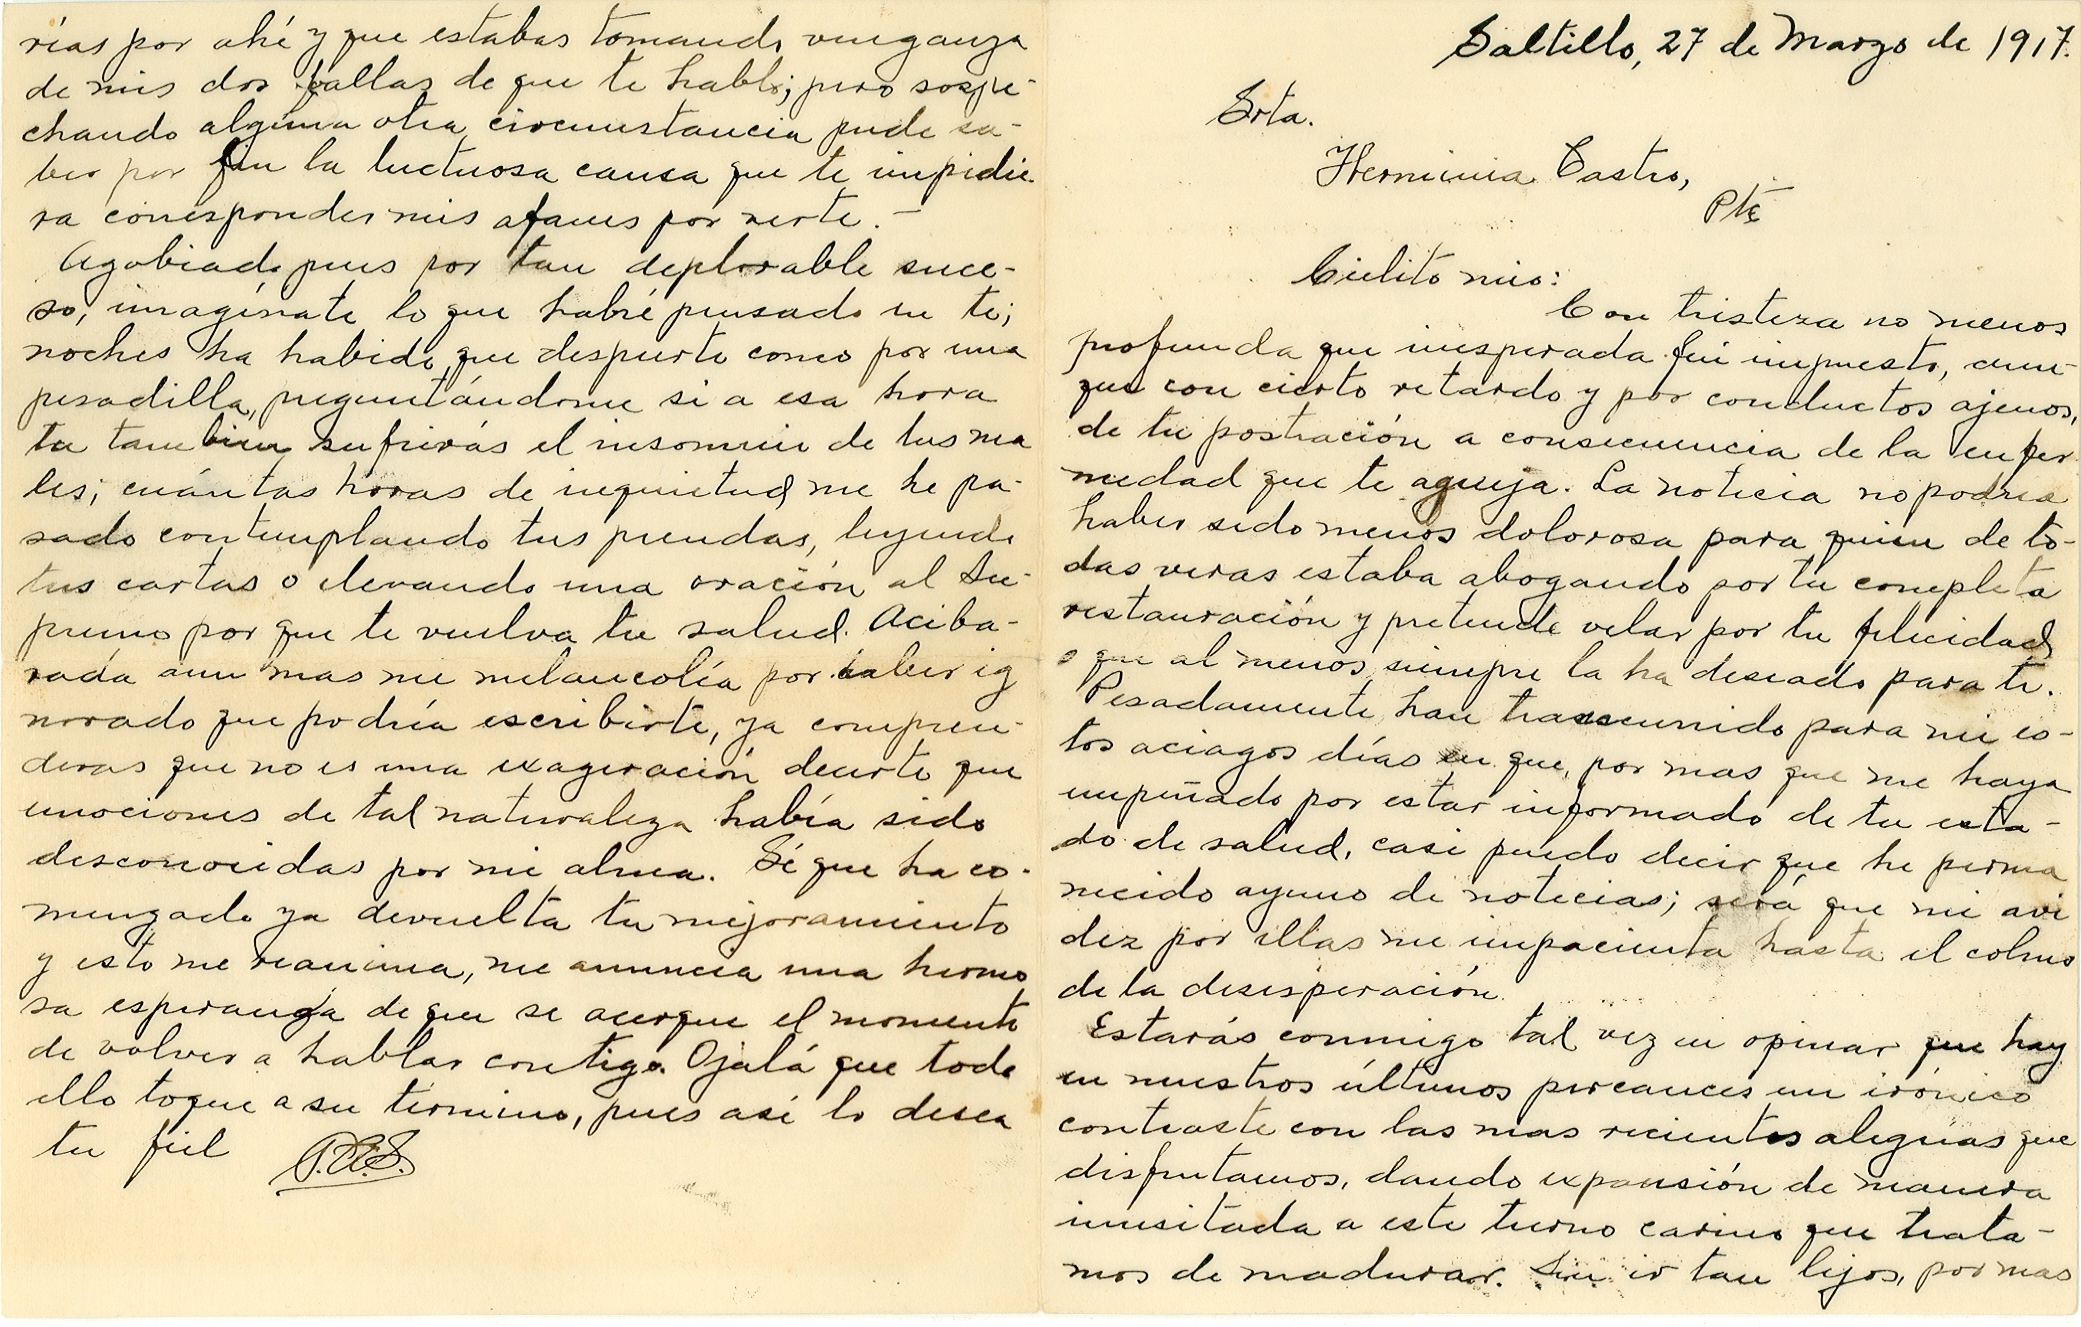 Saltillo, 27 de Marzo de 1917.
Srta.
Herminia Castro,
Pte
Cielito mio:
Con tristeza no menos
profunda que inesperada fui impuesto, aun-
que con cierto retardo y por conductos ajenos,
de tu postración a consecuencia de la enfer
medad que te aqueja. La noticia no podría
haber sido menos dolorosa para quien de to-
das veras estaba abogando por tu completa
restauración y pretende velar por tu felicidad
o que al menos siempre la ha deseado para ti.
Pesadamente han transcurrido para mi es-
tos aciagos días en que, por mas que me haya
empeñado por estar informado de tu esta-
do de salud, casi puedo decir que he perma
necido ayuno de noticias; será que mi avi
dez por ellas me impacienta hasta el colmo
de la desesperación.
Estarás conmigo tal vez en opinar que hay
en nuestros últimos percances un irónico
contraste con las mas recientes alegrías que
disfrutamos, dando expansión de manera
inusitada a este tierno carino que trata-
mos de madurar. Sin ir tan lejos, por mas
rías por ahí y que estabas tomando venganza
de mis dos fallas de que te hablé; pero sospe-
chando alguna otra circunstancia pude sa-
ber por fin la luctuosa causa que te impidie-
ra corresponder mis afanes por verte.-
Agobiado pues por tan deplorable suce-
so, imagínate lo que habré pensado en ti;
noches ha habido que desperte como por una
pesadilla, preguntándome si a esa hora
tu tambien sufrirás el insomnio de tus ma
les; cuántas horas de inquietud me he pa-
sado contemplando tus prendas, leyendo
tus cartas o elevando una oración al Su-
premo por que te vuelva tu salud. Aciba-
rada aun mas mi melancolía por haber ig
norado que podría escribirte, ya compren-
deras que no es una exageración decirte que
emociones de tal naturaleza había sido
desconocidas por mi alma. Sé que ha co-
menzado ya devuelta tu mejoramiento
y esto me reanima, me anuncia una hermo
sa esperanza de que se acerque el momento
de volver a hablar contigo. Ojalá que todo
ello toque a su término, pues así lo desea
tu fiel P.A.S.